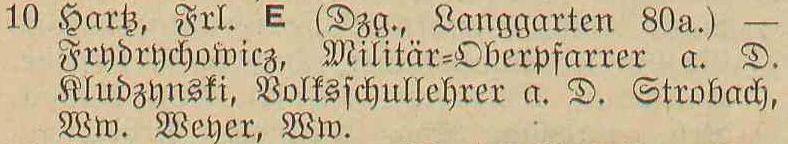 10 Hartz, Frl. E (Dzg., Langgarten 80a.) —
Frydrychowicz, Militär-Oberpfarrer a. D.
Kludzynski, Volksschullehrer a. D. Strobach,
Ww. Weyer, Ww.